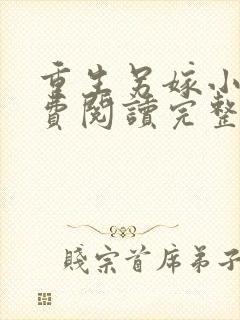 重生另嫁小
費閱讀完整
賤宗首席弟子